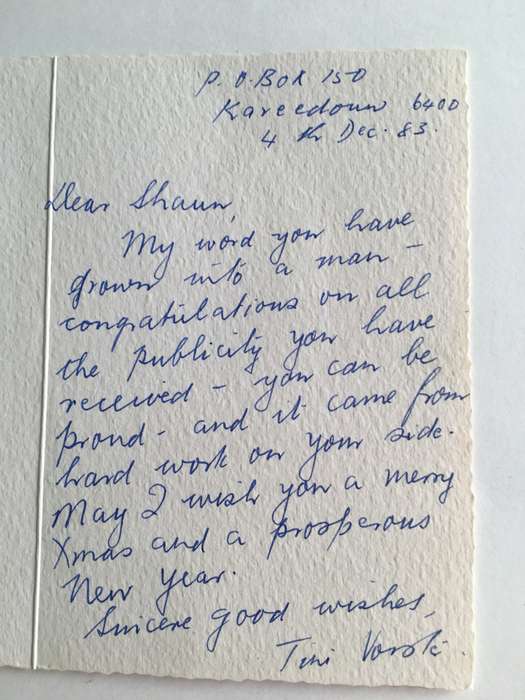 P.O. BOX 150
Kareedouw 6400
4th Dec. 83.
Dear Shaun,
My word you have
grown into a man -
congratulations on all
the publicity you have
received - you can be
proud - and it came from
hard work on your side.
May I wish you a merry
Xmas and a prosperous
New Year.
Sincere good wishes,
Tini